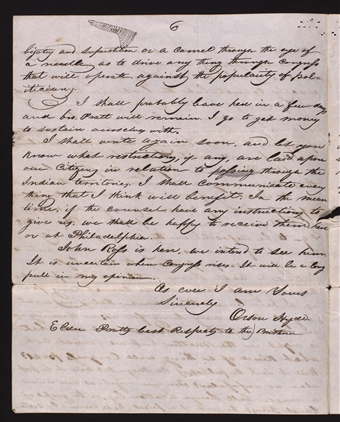 6
bigotry and superstition or a camel through the eye of
a needle, as to drive any thing through Congress
that will operate against the popularity of pol-
iticians.
I shall probably leave here in a few days
and bro. Pratt will remain. I go to get money
to sustain ourselves with.
I shall write again soon, and let you
know what restrictions, if any, are laid upon
our citizens in relation to passing through the
Indian territories. I shall communicate every
thing that I think will benefit. In the mean
time, if the council have any instructions to
give us, we shall be happy to receive them here
or at Philadelphia.
John Ross is here, we intend to see him.
It is uncertain when Congress rises. It will be a long
pull in my opinion.
As ever I am Yours
Sincerely
Orson Hyde
Elder Pratts best Respects to the Brethren